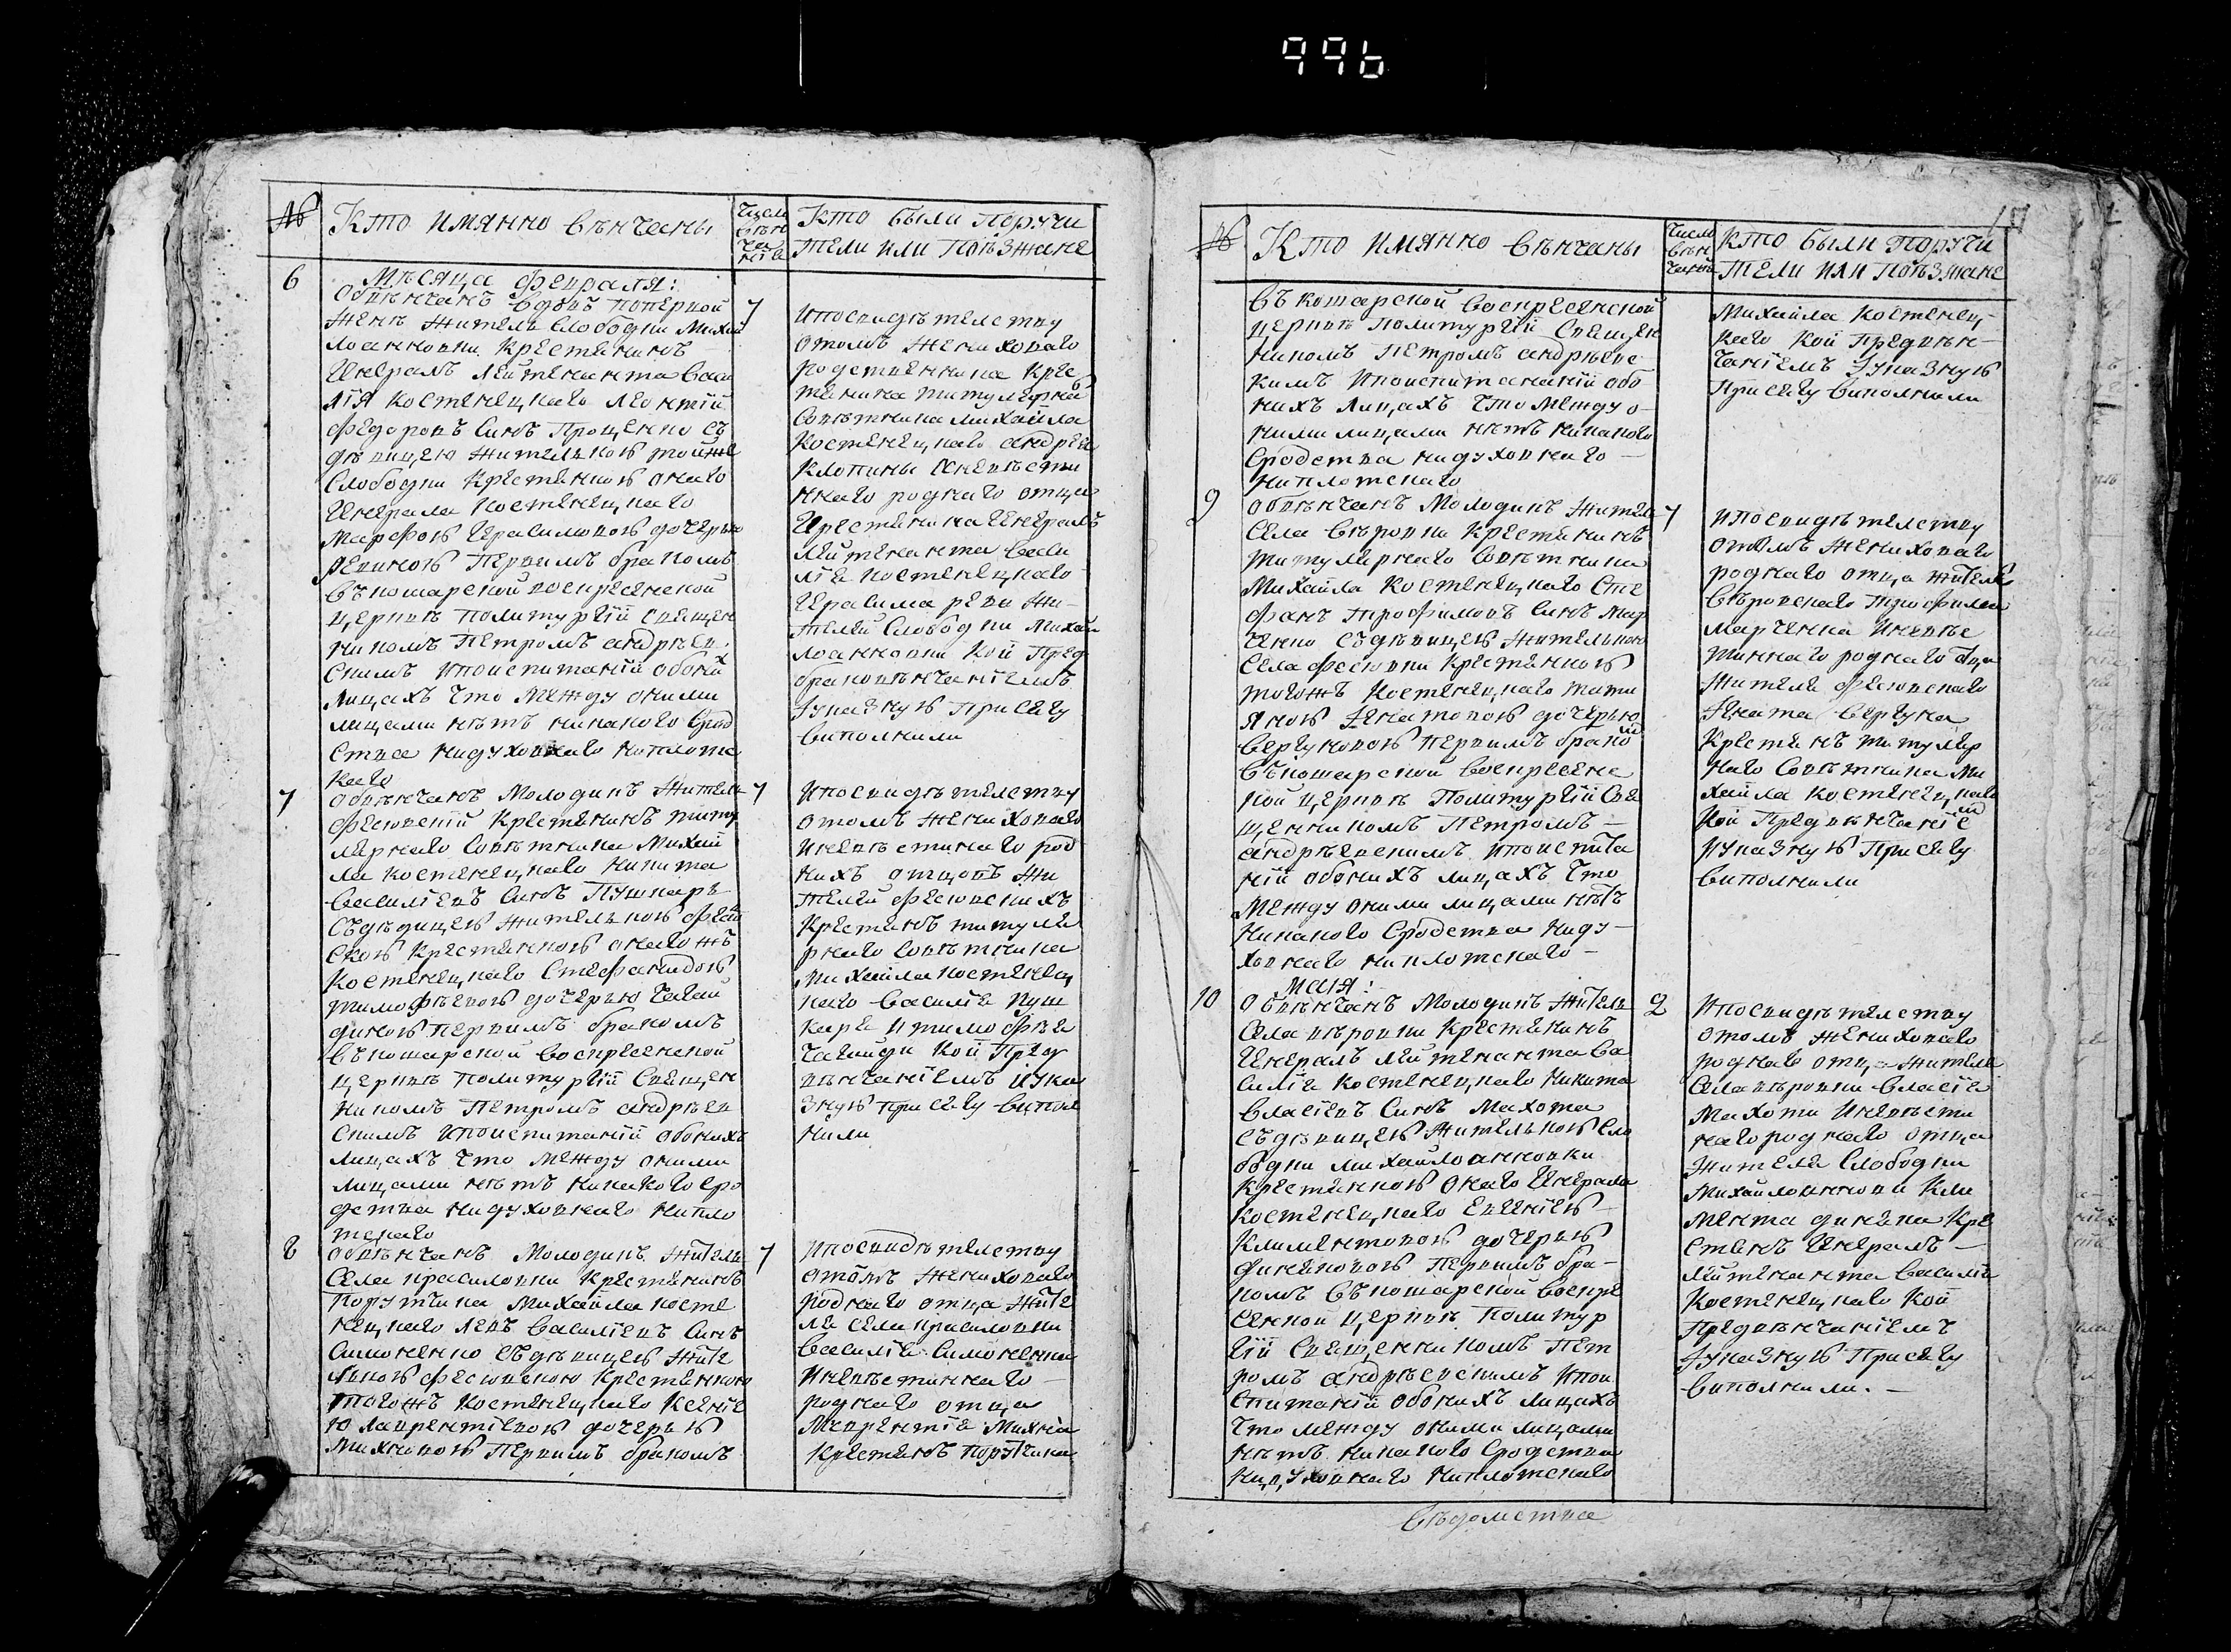 996
№
Кто имянно вѣнчаны
Число вѣнчанія
Кто были поручи
тели или поѣзжане
6
Мѣсяца Февраля:
Обвѣнчанъ вдовъ попервой
7
женѣ житель слободки Михай
лоанновки крестянинъ
Генералъ лейтенанта Васи
лія Костенецкаго Леонтій
Федоровъ синъ Проценко съ
дѣвицею жителькою тойже
слободки крестянкою онаго
Генерала Костенецкаго
Марфою Герасимовою дочерью
Ревиною первимъ бракомъ
въ кошарской воскресенской
церквѣ политургіи священ
никомъ Петромъ Андрѣев
скимъ ипоиспитаніи обоних
лицахъ что между оними
лицами нѣтъ никакого срод
ства нидуховнаго ниплотс
каго
ипосвидѣтелству
отомъ жениховаго
родственника крес
тянина титулярна
совѣтника Михайла
Костенецкаго Андрея
Клопины иневѣсти
ннаго роднаго отца
крестянина Генералъ
лейтенанта Васи
лія Костенецкаго
Герасима Реви жи-
телей слободки Михай
лоанновки кой пред
браковѣнчаніемъ
јуказную присягу
виполнили
7
Обвѣнчанъ молодикъ житель
7
Фесювскій крестянинъ титу
лярнаго совѣтника Михай
ла Костенецкаго Никита
Василіевъ синъ Пушкарь
съдѣвицею жителькою Фесю
скою крестянкою онагожъ
Костенецкаго Стефанидою
Тимофѣевою дочерью Чагай
диною первимъ бракомъ
въкошарской воскресенской
церквѣ политургіи священ
никомъ Петромъ Андрѣев
скимъ ипоиспитаніи обонихъ
лицахъ что между оними
лицами нѣтъ никакого сро
дства нидуховнаго нипло
тскаго
ипосвидѣтелству
отомъ жениховаго
иневѣстинаго род
нихъ отцовъ жи
телей Фесювскихъ
крестянъ титуля
рнаго совѣтника
Михайла Костенец
каго Василія Пуш
каря итимофѣя
Чагайди кой пред
вѣнчаніемъ јука
зную присягу випол
нили
8
Обвѣнчанъ молодикъ житель
7
села Красиловки крестянинъ
Поручика Михайла Косте
нецкаго Левъ Василіевъ синъ
Симоненко съдѣвицею жите
лькою Фесювскою крестянкою
тогожъ Костенецкаго Ксеніе
ю Лаврентіевою дочерью
Михновою первимъ бракомъ
ипосвидѣтелству
отомъ жениховаго
роднаго отца жите
ля села Красиловки
Василія Симоненка
иневѣстиннаго
роднаго отца
Лаврентія Михна
крестянъ поручика
№
Кто имянно вѣнчаны
Число вѣнчанія
Кто были поручи
тели или поѣзжане
въкошарской воскресенской
церквѣ политургіи священ
никомъ Петромъ Андрѣевс
кимъ ипоиспитананіи обо
нихъ лицахъ что между о-
ними лицами нѣтъ никакого
сродства нидуховнаго —
ниплотскаго
Михайла Костенец-
каго кой предвѣн-
чаніемъ јуказную
присягу виполнили
9
Обвѣнчанъ молодикъ житель
7
села Вѣровки крестянинъ
титулярнаго совѣтника
Михайла Костенецкаго Сте
фанъ Трофимовъ синъ Мар
ченко съдѣвицею жителькою
села Фесювки крестянкою
тогожъ Костенецкаго Тати
яною Ігнатовою дочерью
Вергуновою первимъ бракомъ
въкошарской воскресенс
кой церквѣ политургіи свя
щенникомъ Петромъ —
Андрѣевскимъ ипоиспита
ніи обонихъ лицахъ что
между оними лицами нѣтъ
никакого сродства ниду-
ховнаго ниплотскаго —
ипосвидѣтелству
отомъ жениховаго
роднаго отца жителя
Вѣровскаго Трофима
Марченка иневѣс
тиннаго роднаго отца
жителя Фесювскаго
Ігната Вергуна
крестянъ титуляр
наго совѣтника Ми
хайла Костенецкаго
кой предвѣнчаніем
иуказную присягу
виполнили
Мая:
10
Обвѣнчанъ молодикъ житель
2
села Вѣровки крестянинъ
Генералъ лейтенанта Ва
силія Костенецкаго Никита
Власіевъ синъ Махота
съдѣвицею жителькою сло
бодки Михайлоанновки
крестянкою онаго Генерала
Костенецкаго Евгеніею
Климентовою дочерью
Динековою первимъ бра-
комъ въкошарской воскре
сенской церквѣ политур
гіи священникомъ Пет
ромъ Андрѣевскимъ ипои
спитаніи обонихъ лицахъ
что между оними лицами
нѣтъ никакого сродства
нидуховнаго ниплотскаго
ипосвидѣтелству
отомъ жениховаго
роднаго отца жителя
села Вѣровки Власія
Махоти иневѣсти
наго роднаго отца
жителя слободки
Михайлоанновки Кли
мента Динека кре
стянъ Генералъ —
лейтенанта Василія
Костенецкаго кой
предвѣнчаніемъ
јуказную присягу
виполнили. —